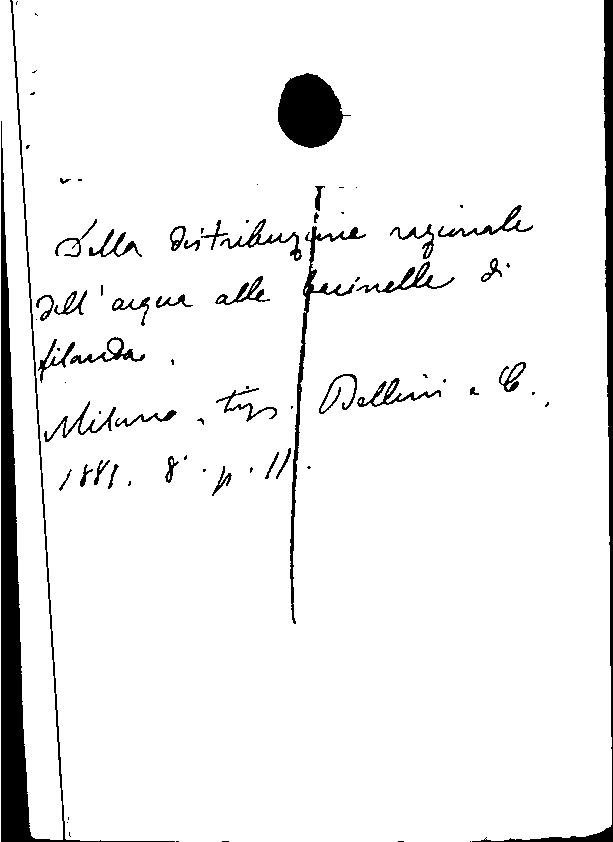 Della distribuzione razionale
dell'acqua alle bacinelle di
filanda.
Milano, tip. Bellini e C.,
1881. 8° p. 11.